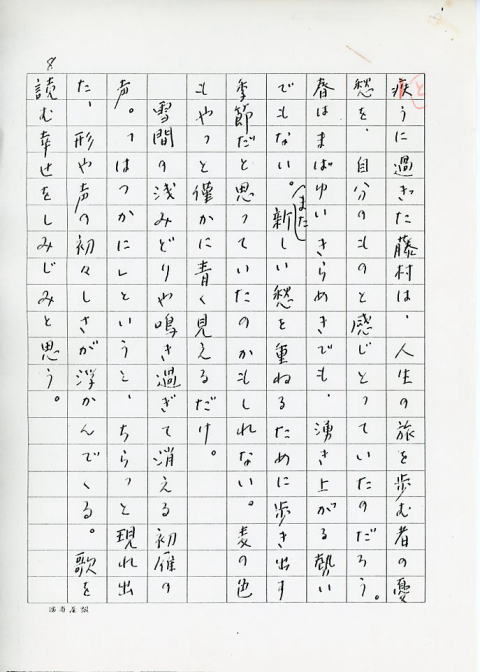 8
疾うに過ぎた藤村は、人生の旅を歩む者の憂
愁を、自分のものと感じとっていたのだろう。
春はまばゆいきらめきでも、湧き上がる勢い
でもない。また新しい愁を重ねるために歩き出す
季節だと思っていたのかもしれない。麦の色
もやっと僅かに青く見えるだけ。
雪間の浅みどりや鳴き過ぎて消える初雁の
声。「はつかに」というと、ちらっと現れ出
た、形や声の初々しさが浮かんでくる。歌を
読む幸せをしみじみと思う。